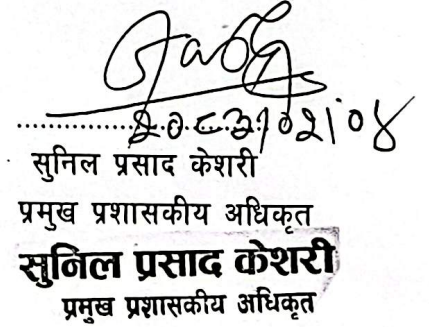 सुनिल प्रसाद केशरी
प्रमुख प्रशासकीय अधिकृत
सुनिल प्रसाद केशरी
प्रमुख प्रशासकीय अधिकृत